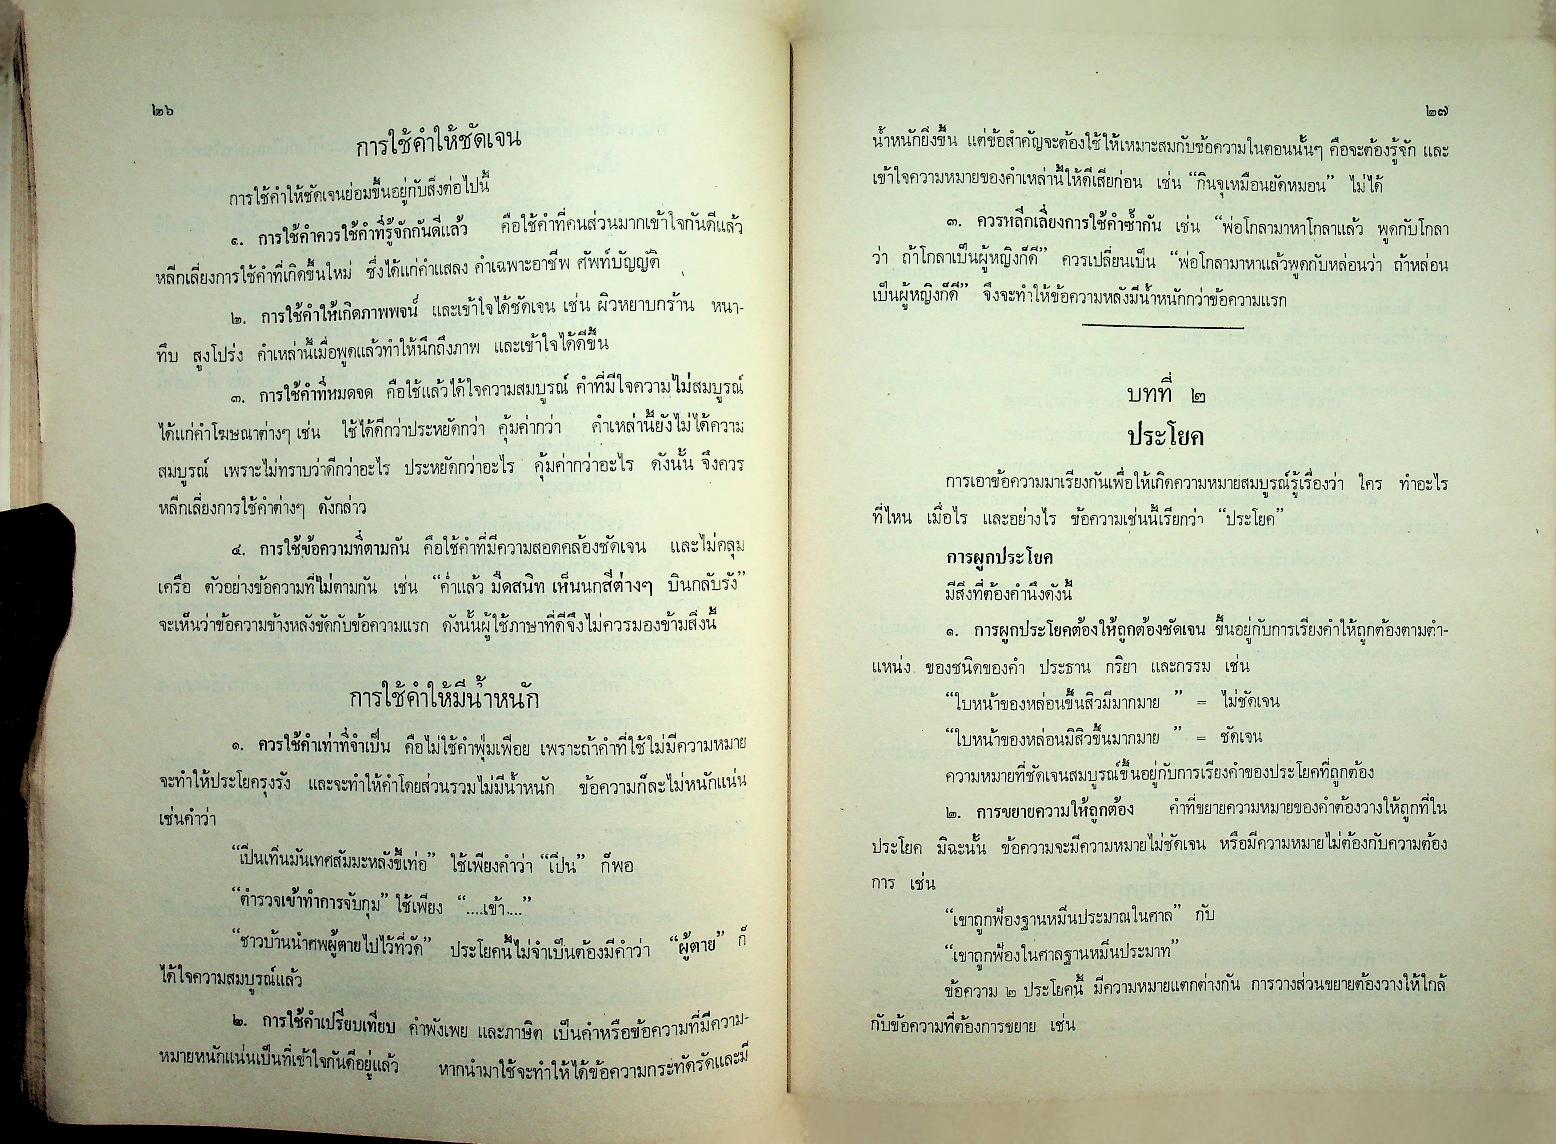 ๒๖
การใช้คำให้ชัดเจน
การใช้คำให้ชัดเจนย่อมขึ้นอยู่กับสิ่งต่อไปนี้
๑. การใช้คำควรใช้คำที่รู้จักกันดีแล้ว คือใช้คำที่คนส่วนมากเข้าใจกันดีแล้ว
หลีกเลี่ยงการใช้คำที่เกิดขึ้นใหม่ ซึ่งได้แก่คำแสลง คำเฉพาะอาชีพ ศัพท์บัญญัติ
๒. การใช้คำให้เกิดภาพพจน์ และเข้าใจได้ชัดเจน เช่น ผิวหยาบกร้าน หนา-
ทึบ สูงโปร่ง คำเหล่านี้เมื่อพูดแล้วทำให้นึกถึงภาพ และเข้าใจได้ดีขึ้น
๓. การใช้คำที่หมดจด คือใช้แล้วได้ใจความสมบูรณ์ คำที่มีใจความไม่สมบูรณ์
ได้แก่คำโฆษณาต่างๆ เช่น ใช้ได้ดีกว่าประหยัดกว่า คุ้มค่ากว่า คำเหล่านี้ยังไม่ได้ความ
สมบูรณ์ เพราะไม่ทราบว่าดีกว่าอะไร ประหยัดกว่าอะไร คุ้มค่ากว่าอะไร ดังนั้น จึงควร
หลีกเลี่ยงการใช้คำต่างๆ ดังกล่าว
๔. การใช้ข้อความที่ตามกัน คือใช้คำที่มีความสอดคล้องชัดเจน และไม่คลุม
เครือ ตัวอย่างข้อความที่ไม่ตามกัน เช่น “ค่ำแล้ว มืดสนิท เห็นนกสีต่างๆ บินกลับรัง”
จะเห็นว่าข้อความข้างหลังขัดกับข้อความแรก ดังนั้นผู้ใช้ภาษาที่ดีจึงไม่ควรมองข้ามสิ่งนี้
การใช้คำให้มีน้ำหนัก
๑. ควรใช้คำเท่าที่จำเป็น คือไม่ใช้คำฟุ่มเฟือย เพราะถ้าคำที่ใช้ไม่มีความหมาย
จะทำให้ประโยครุงรัง และจะทำให้คำโดยส่วนรวมไม่มีน้ำหนัก ข้อความก็ละไม่หนักแน่น
เช่นคำว่า
“เป็นเทิ่นมันเทศสัมมะหลังขี้เท่อ” ใช้เพียงคำว่า “เป็น” ก็พอ
“ตำรวจเข้าทำการจับกุม” ใช้เพียง “....เข้า....”
“ชาวบ้านนำศพผู้ตายไปไว้ที่วัด” ประโยคนี้ไม่จำเป็นต้องมีคำว่า “ผู้ตาย” ก็
ได้ใจความสมบูรณ์แล้ว
๒. การใช้คำเปรียบเทียบ คำพังเพย และภาษิต เป็นคำหรือข้อความที่มีความ-
หมายหนักแน่นเป็นที่เข้าใจกันดีอยู่แล้ว หากนำมาใช้จะทำให้ได้ข้อความกระทัดรัดและมี
๒๗
น้ำหนักยิ่งขึ้น แต่ข้อสำคัญจะต้องใช้ให้เหมาะสมกับข้อความในตอนนั้นๆ คือจะต้องรู้จัก และ
เข้าใจความหมายของคำเหล่านี้ให้ดีเสียก่อน เช่น “กินจุเหมือนยัดหมอน” ไม่ได้
๓. ควรหลีกเลี่ยงการใช้คำซ้ำกัน เช่น “พ่อโกลามาหาโกลาแล้ว พูดกับโกลา
ว่า ถ้าโกลาเป็นผู้หญิงก็ดี” ควรเปลี่ยนเป็น “พ่อโกลามาหาแล้วพูดกับหล่อนว่า ถ้าหล่อน
เป็นผู้หญิงก็ดี” จึงจะทำให้ข้อความหลังมีน้ำหนักกว่าข้อความแรก
บทที่ ๒
ประโยค
การเอาข้อความมาเรียงกันเพื่อให้เกิดความหมายสมบูรณ์รู้เรื่องว่า ใคร ทำอะไร
ที่ไหน เมื่อไร และอย่างไร ข้อความเช่นนี้เรียกว่า “ประโยค”
การผูกประโยค
มีสิ่งที่ต้องคำนึงดังนี้
๑. การผูกประโยคต้องให้ถูกต้องชัดเจน ขึ้นอยู่กับการเรียงคำให้ถูกต้องตามตำ-
แหน่ง ของชนิดของคำ ประธาน กริยา และกรรม เช่น
“ใบหน้าของหล่อนขึ้นสิวมีมากมาย ” = ไม่ชัดเจน
“ใบหน้าของหล่อนมีสิวขึ้นมากมาย ” = ชัดเจน
ความหมายที่ชัดเจนสมบูรณ์ขึ้นอยู่กับการเรียงคำของประโยคที่ถูกต้อง
๒. การขยายความให้ถูกต้อง คำที่ขยายความหมายของคำต้องวางให้ถูกที่ใน
ประโยค มิฉะนั้น ข้อความจะมีความหมายไม่ชัดเจน หรือมีความหมายไม่ต้องกับความต้อง
การ เช่น
“เขาถูกฟ้องฐานหมิ่นประมาณในศาล” กับ
“เขาถูกฟ้องในศาลฐานหมิ่นประมาท”
ข้อความ ๒ ประโยคนี้ มีความหมายแตกต่างกัน การวางส่วนขยายต้องวางให้ใกล้
กับข้อความที่ต้องการขยาย เช่น